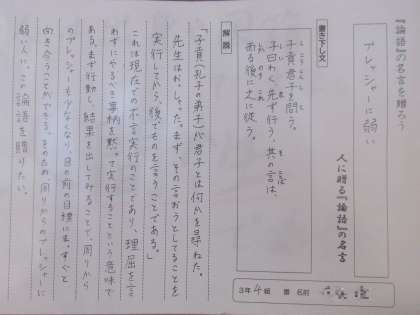 『論語』の名言を贈ろう
プレッシャーに弱い
人に贈る『論語』の名言
書き下し文
しこうくんしと
子貢君子を問う。
しい
子曰わく、先ず行う。其の言は、
而る後に之に従う。
解説
「子貢(孔子の弟子)が君子とは何かを尋ねた。
先生はおっしゃった。まず、その言おうとしてることを
実行してから、後でものを言うことである。」
これは現在での不言実行のことであり、理屈を言
わずにやるべき事柄を黙って実行することという意味で
ある。まず行動し、結果を出してみることで、周りから
のプレッシャーも少なくなり、目の前の目標にも、すぐと
向き合うことができる。そのため、周りからのプレッシャーに
弱い人に、この論語を贈りたい。
3年4組 番 名前